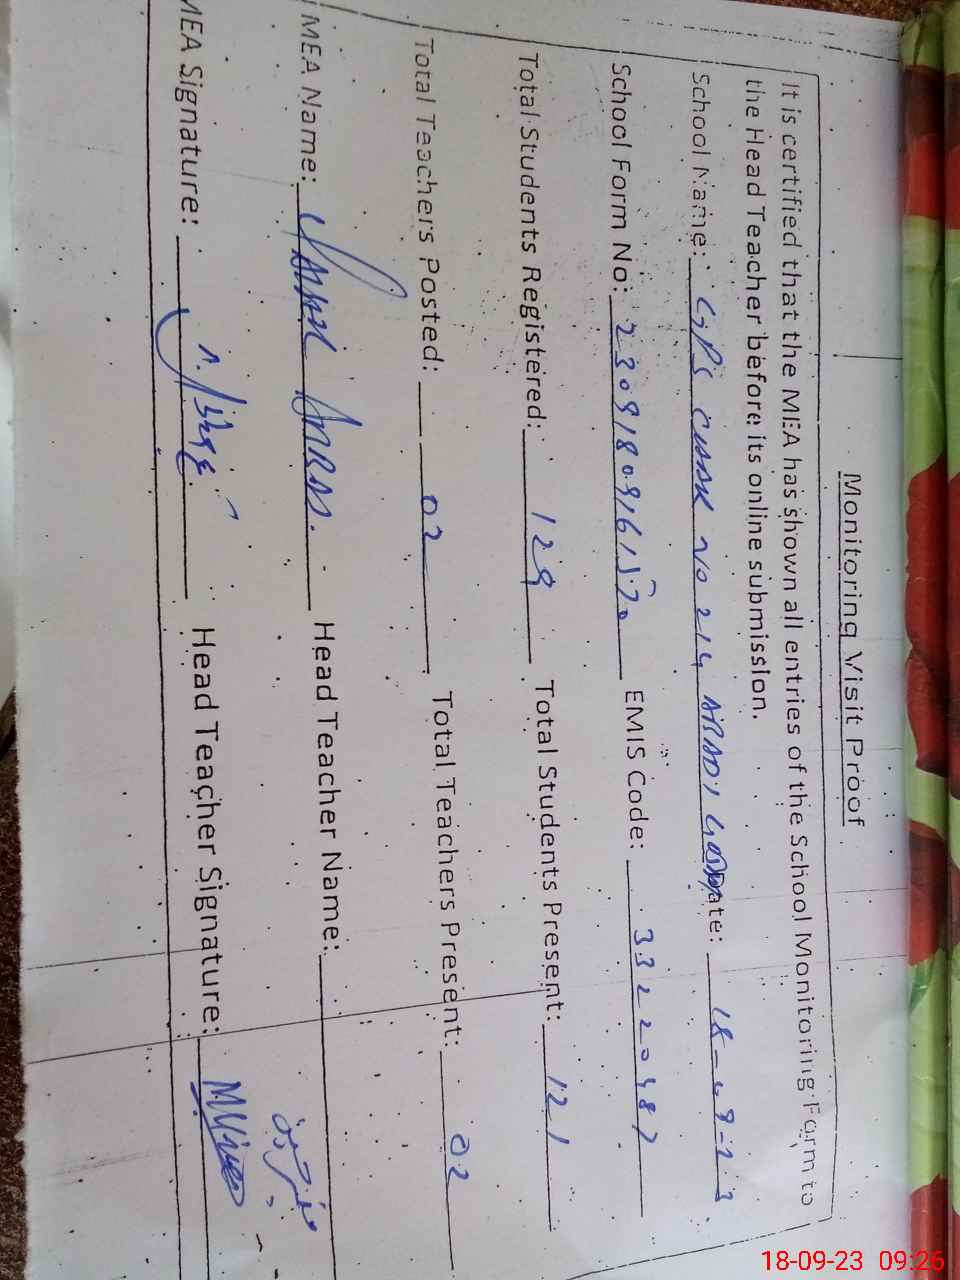 Monitoring Visit Proof
It is certified that the MEA has shown all entries of the School Monitoring Form to
the Head Teacher before its online submission.
School Name: GPS CHAK NO 214 Date: 18-09-23
School Form No: EMIS Code: 33220487
Total Students Registered: 129 Total Students Present: 121
Total Teachers Posted: 02 Total Teachers Present: 02
MEA Name: Head Teacher Name:
MEA Signature: Head Teacher Signature:
18-09-23 09:26